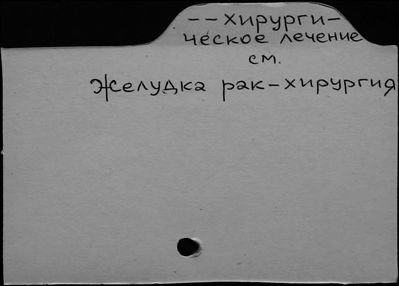 -- хирурги-
ческое лечение
см.
Желудка рак-хирургия